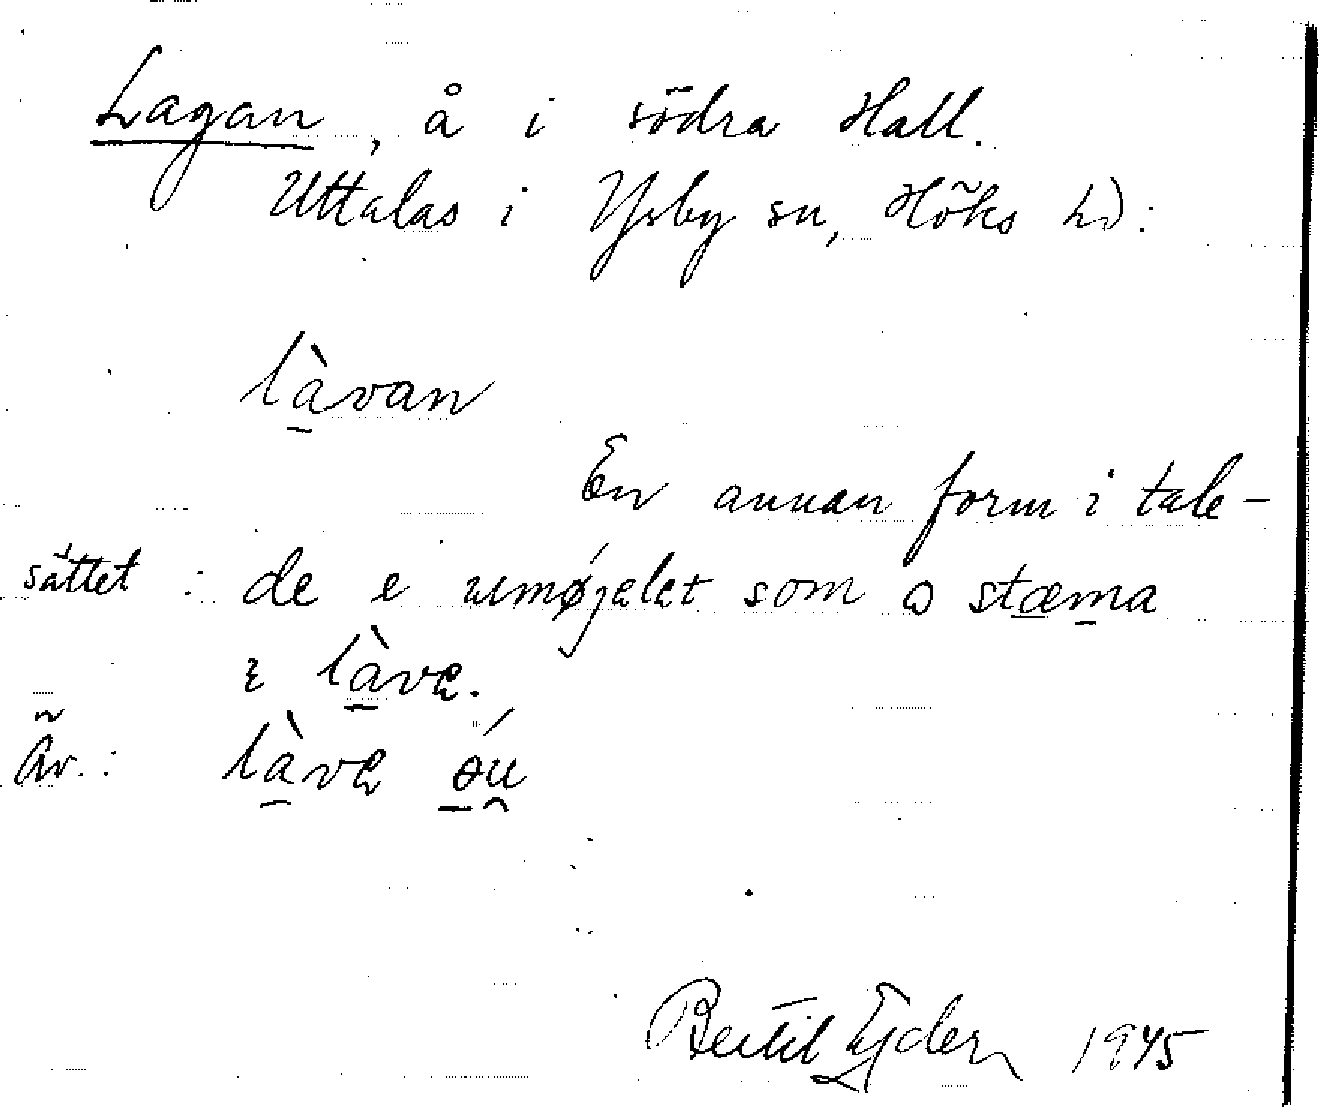 Lagan, å i södra Hall.
Uttalas i Ysby sn, Höks hd:
làvan
En annan form i tale-
sättet : de e umøjelet som o stæma
i làve.
Äv.: làve øu
Bertil Ejder 1945